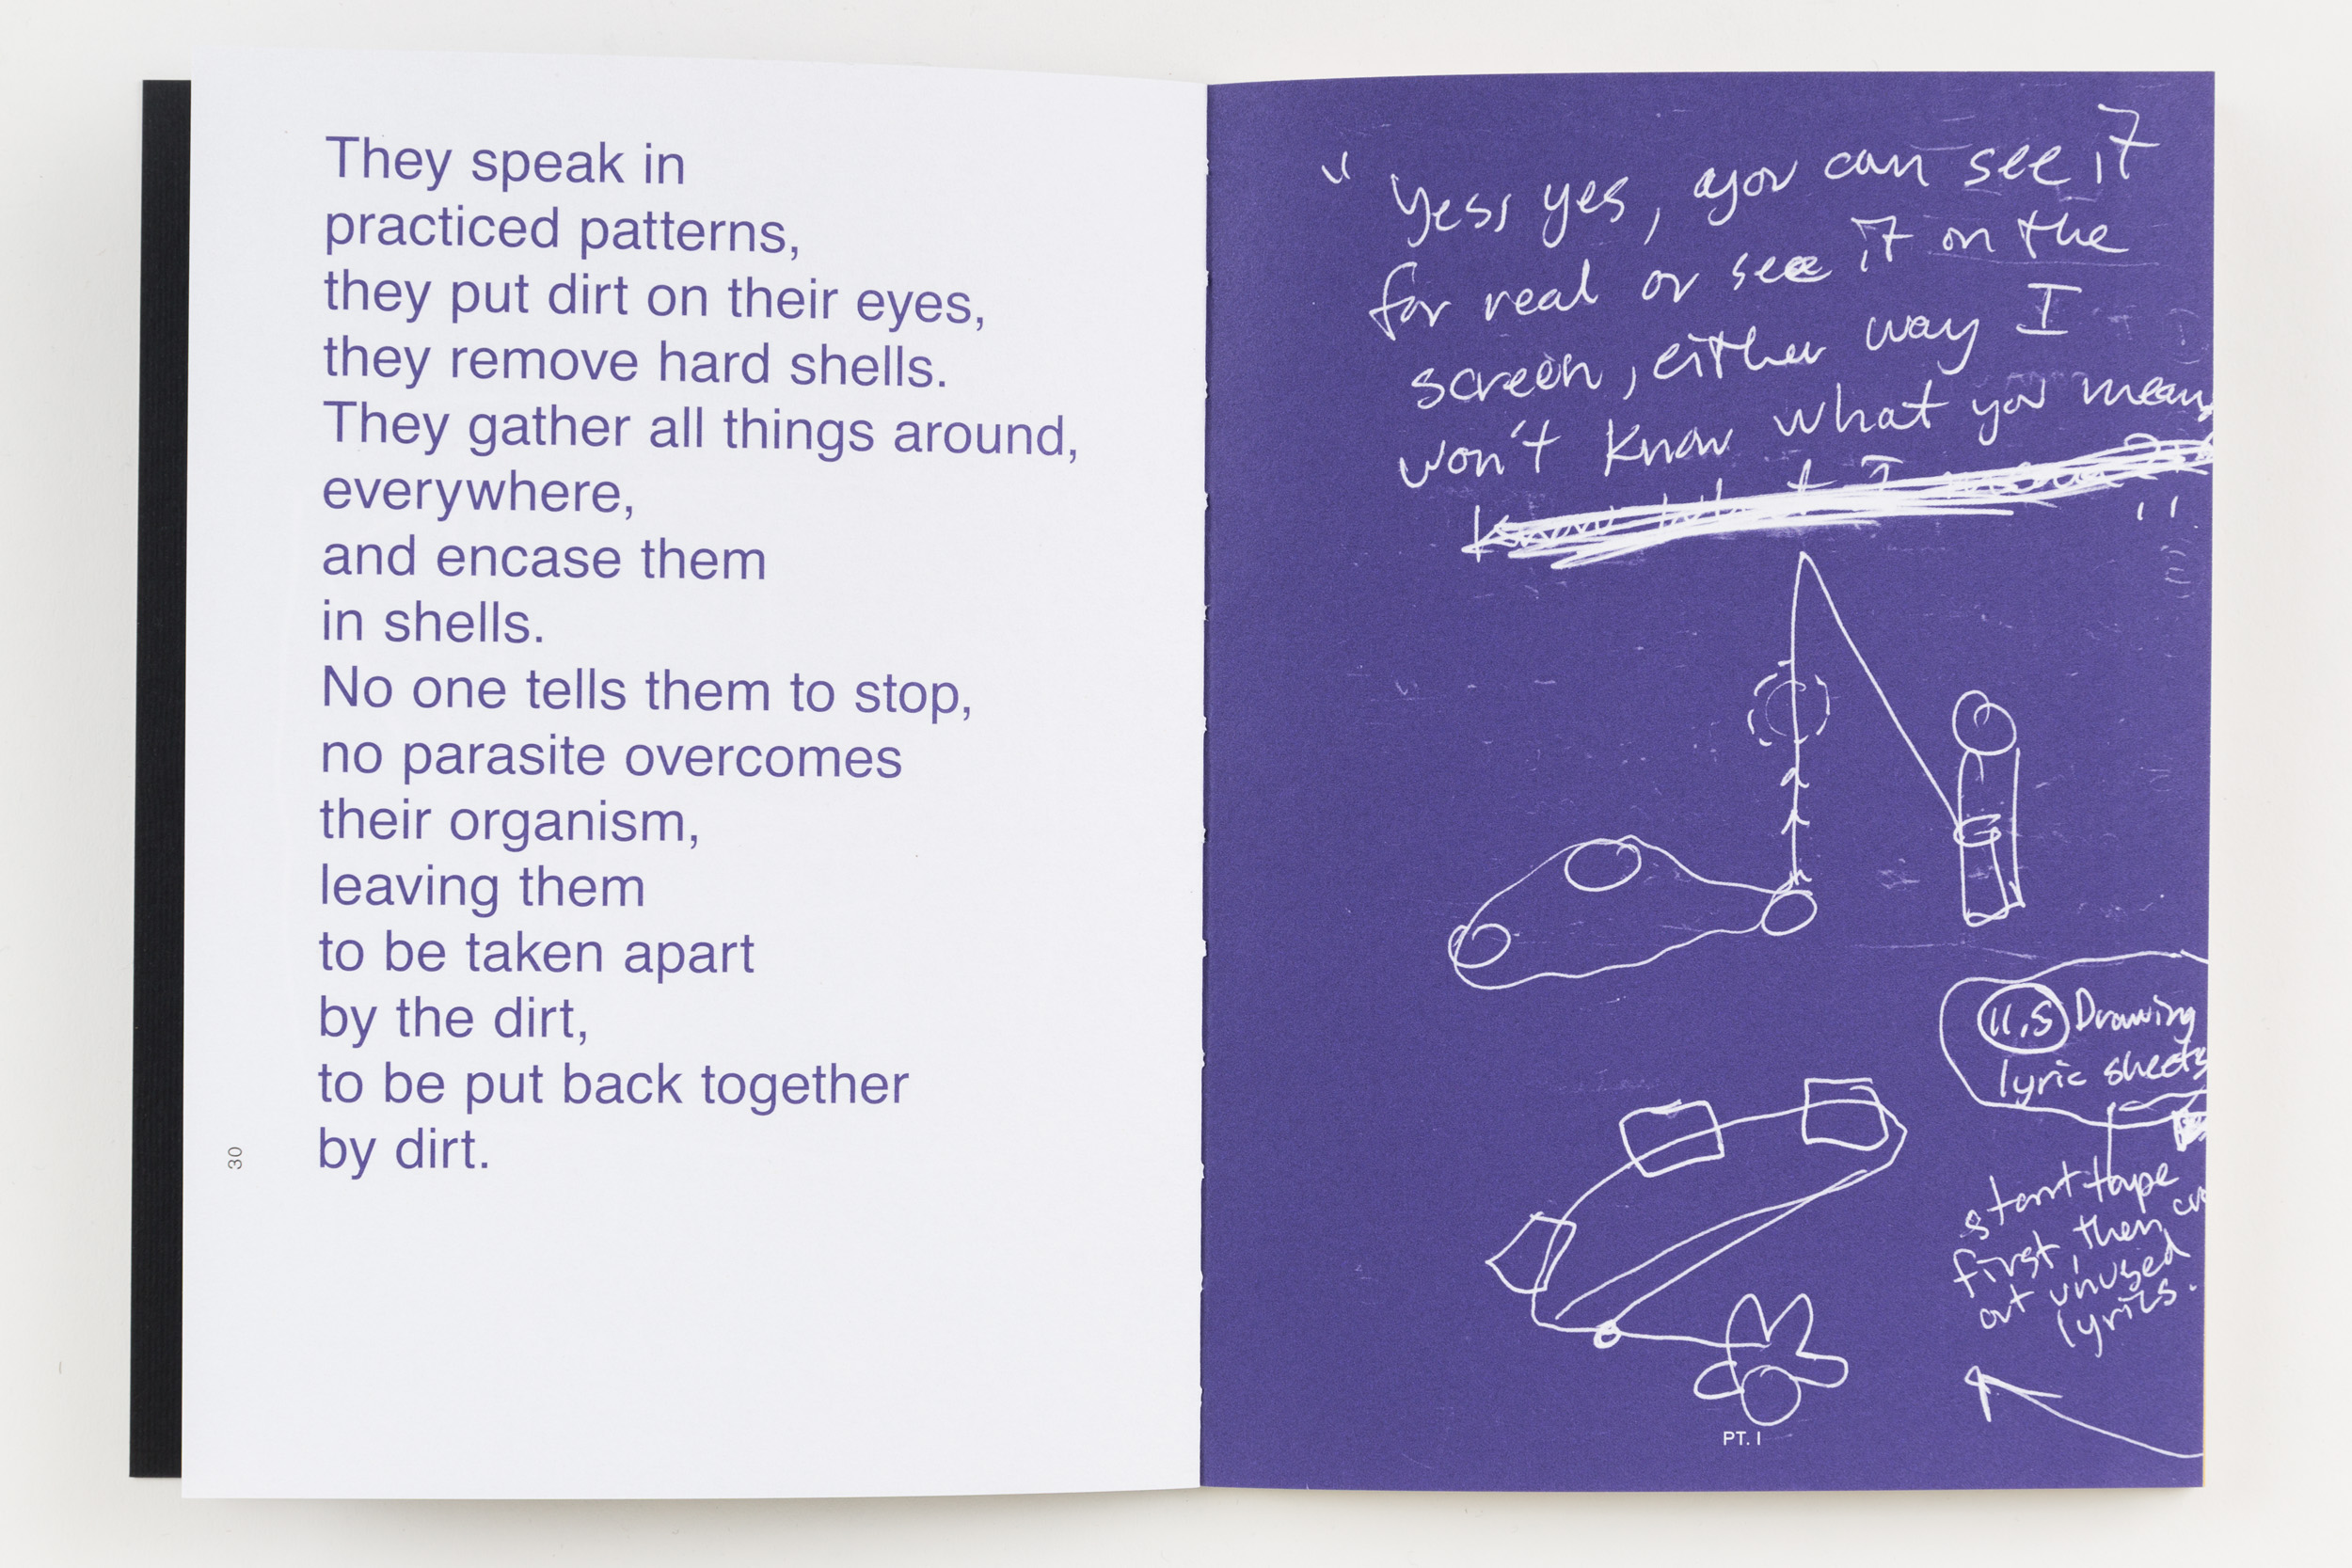 They speak in
practiced patterns,
they put dirt on their eyes,
they remove hard shells.
They gather all things around,
everywhere,
and encase them
in shells.
No one tells them to stop,
no parasite overcomes
their organism,
leaving them
to be taken apart
by the dirt,
to be put back together
by dirt.
30
" Yess yes, you can see it
for real or see it on the
screen, either way I
won't know what you mean
"
11,5 Drawing
lyric sheets
start tape
first, then
out unused
lyrics.
PT. I